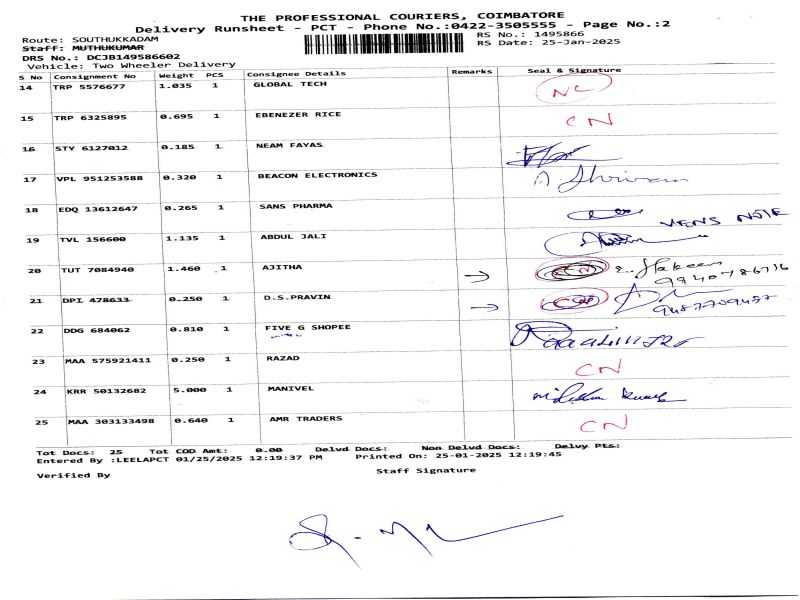 THE PROFESSIONAL COURIERS, COIMBATORE
Delivery Runsheet - PCT - Phone No.:0422-3505555 - Page No.:2
Route: SOUTHUKKADAM RS No.: 1495866
Staff: MUTHUKUMAR RS Date: 25-Jan-2025
DRS No.: DCJB149586602
Vehicle: Two Wheeler Delivery
S No Consignment No Weight PCS Consignee Details Remarks Seal & Signature
14 TRP 5576677 1.035 1 GLOBAL TECH NC
15 TRP 6325895 0.695 1 EBENEZER RICE CN
16 STY 6127012 0.185 1 NEAM FAYAS
17 VPL 951253588 0.320 1 BEACON ELECTRONICS
18 EDQ 13612647 0.265 1 SANS PHARMA
19 TVL 156600 1.135 1 ABDUL JALI
20 TUT 7084940 1.460 1 AJITHA CN
21 DPI 478633 0.250 1 D.S.PRAVIN CN
22 DDG 684062 0.810 1 FIVE G SHOPEE
23 MAA 575921411 0.250 1 RAZAD CN
24 KRR 50132682 5.000 1 MANIVEL
25 MAA 303133498 0.640 1 AMR TRADERS CN
Tot Docs: 25 Tot COD Amt: 0.00 Delvd Docs: Non Delvd Docs: Delvy Pts:
Entered By :LEELAPCT 01/25/2025 12:19:37 PM Printed On: 25-01-2025 12:19:45
Verified By Staff Signature